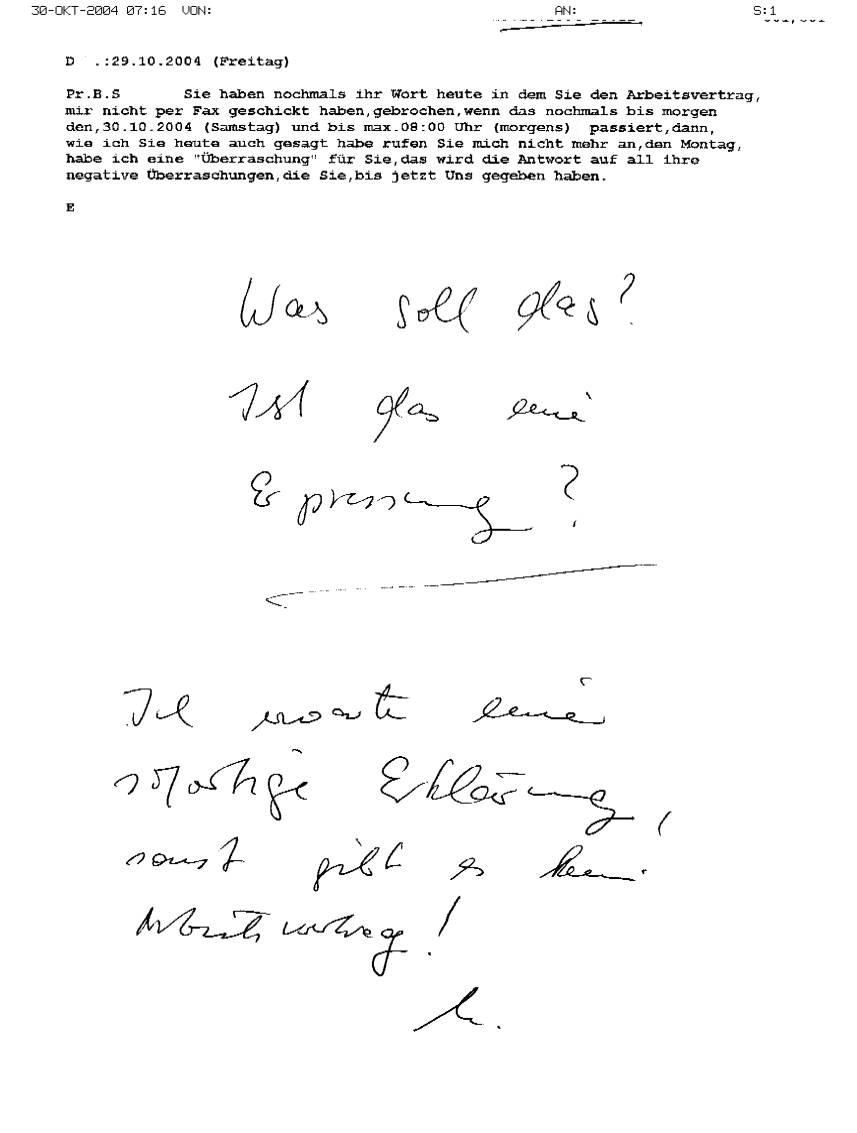 30-OKT-2004 07:16 VON: AN: S:1
D .:29.10.2004 (Freitag)
Pr.B.S Sie haben nochmals ihr Wort heute in dem Sie den Arbeitsvertrag,
mir nicht per Fax geschickt haben,gebrochen,wenn das nochmals bis morgen
den,30.10.2004 (Samstag) und bis max.08:00 Uhr (morgens) passiert,dann,
wie ich Sie heute auch gesagt habe rufen Sie mich nicht mehr an,den Montag,
habe ich eine "Überraschung" für Sie,das wird die Antwort auf all ihre
negative Überraschungen,die Sie,bis jetzt Uns gegeben haben.
E
Was soll das?
Ist das eine
Erpressung?
Ich warte eine
sofortige Erklärung,
sonst gibt es kein
Arbeitsvertrag!